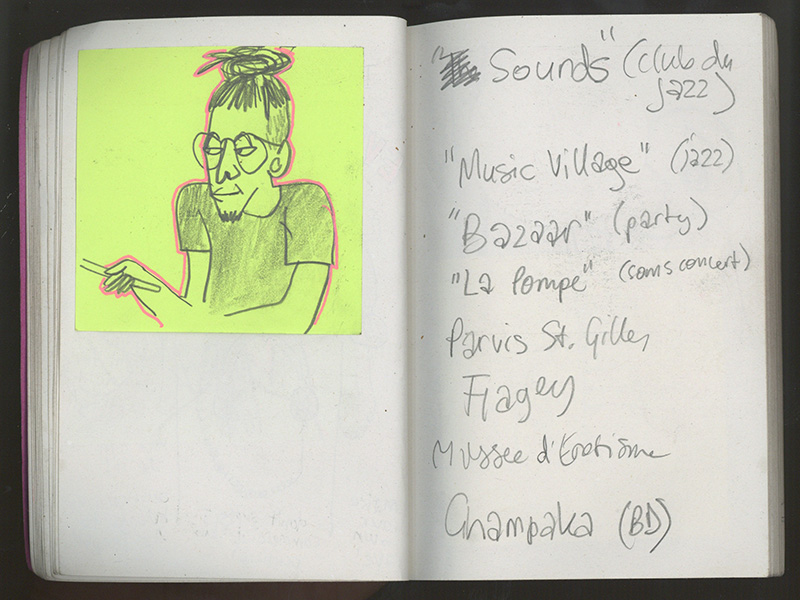 "Sounds" (club du
jazz)
"Music Village" (jazz)
"Bazaar" (party)
"La Pompe" (soms concert)
Parvis St. Gilles
Flagey
Mussee d'Erotisme
Champaka (BD)